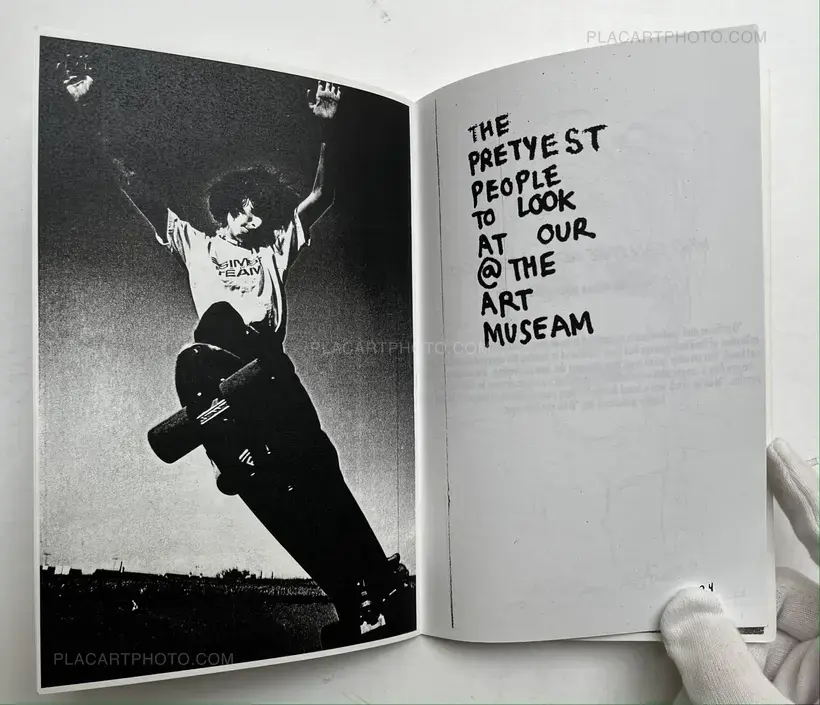 PLACARTPHOTO.COM
SIMS
TEAM
THE
PRETYEST
PEOPLE
TO LOOK
AT OUR
@ THE
ART
MUSEAM
PLACARTPHOTO.COM
PLACARTPHOTO.COM